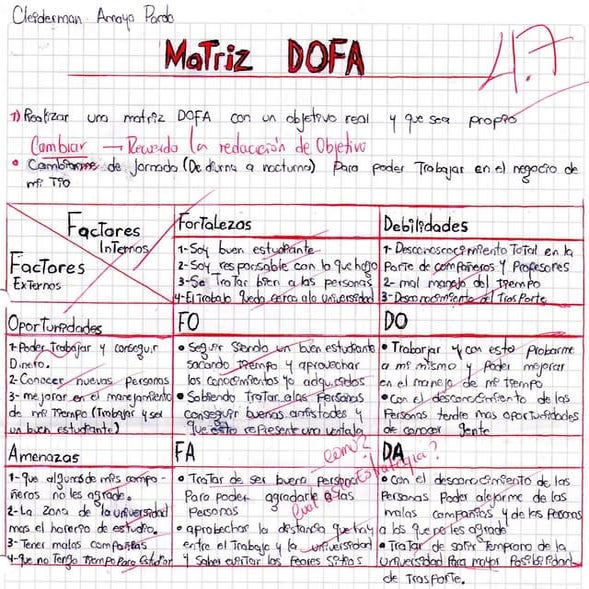 Cleiderman Amaya Pardo
MaTriz DOFA
4.7
1) Realizar una matriz DOFA con un objetivo real y que sea propio
Cambiar → Recuerda la redacción de Objetivo
• Cambiarme de jornada (De diurna a nocturna) Para poder Trabajar en el negocio de
mi Tio
Factores
Internos
Factores
Externos
Fortalezas
1-Soy buen estudiante
2-Soy responsable con lo que hago
3-Se Tratar bien a las personas
4-El trabajo queda cerca a la universidad
Debilidades
1-Desconoscocimiento Total en la
Parte de compañeros y Profesores
2- mal manejo del Tiempo
3-Desconocimiento del Trasporte
Oportunidades
1-Poder Trabajar y conseguir
Dinero.
2-Conocer nuevas personas
3-mejorar en el manejamiento
de mi Tiempo (Trabajar y ser
un buen estudiante)
FO
• Seguir siendo un buen estudiante
sacando Tiempo y aprovechar
los conocimientos ya adquiridos
• Sabiendo Tratar a las Personas
conseguir buenas amistades y
que esto represente una ventaja
DO
• Trabarjar y con esto probarme
a mi mismo y Poder mejorar
en el manejo de mi tiempo
• con el desconocimiento de las
Personas tendre mas oportunidades
de conocer gente
Amenazas
1-que algunos de mis compa-
ñeros no les agrade.
2-La zona de la universidad
mas el horario de estudio.
3-Tener malas compañias
4-que no Tenga Tiempo Para Estudiar
FA
como?
Cual es la Estrategia?
• Tratar de ser buena persona
Para poder agradarle a las
Personas
• aprobechar la distancia que hay
entre el Trabajo y la universidad
y Saber evitar los Peores Sitios
DA
• con el desconocimiento de las
Personas Poder alejarme de las
malas compañias y de las Personas
a los que no les agrado
• Tratar de salir Temprano de la
Universidad Para mayor Posibilidad
de Trasporte.